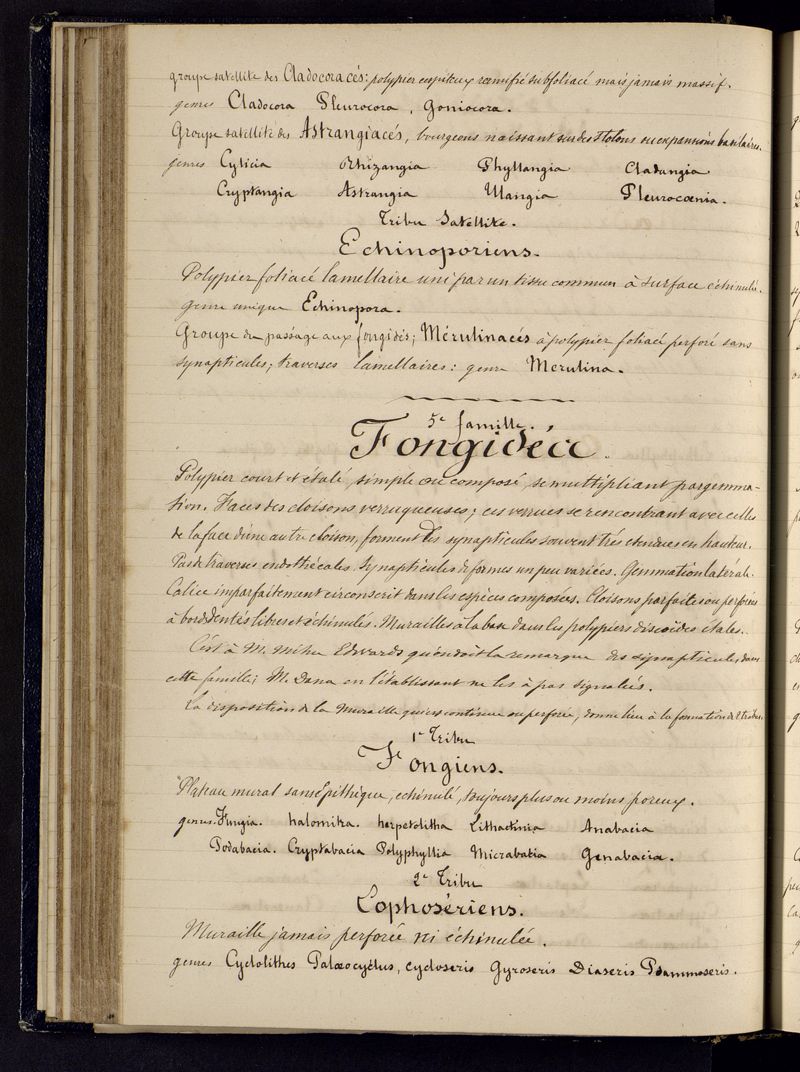 groupe satellite des Cladocoracés: polypier cespiteux ramifié subfoliacé mais jamais massif.
genres Cladocora Pleurocora, Goniocora.
Groupe satellite des Astrangiacés, bourgeons naissant sur des stolons ou expansions basilaires.
genres Cylicia Rhizangia Phyllangia Cladangia
Cryptangia Astrangia Ulangia Pleurocœnia.
Tribu Satellite.
Echinoporiens.
Polypier foliacé lamellaire uni par un tissu commun à surface échinulée.
genre unique Echinopora.
Groupe de passage aux fongidés; Mérulinacés à polypier foliacé perforé sans
synapticules; traverses lamellaires: genre Merulina.
5e famille.
Fongidéa.
Polypier court et étalé, simple ou composé, se multipliant par gemma-
tion. Faces des cloisons verruqueuses; ces verrues se rencontrant avec celles
de la face d'une autre cloison, forment des synapticules souvent très étendues en hauteur.
Pas de traverses endothécales. Synapticules de formes un peu variées. Gemmation latérale.
Calice imparfaitement circonscrit dans les espèces composées. Cloisons parfaites ou perforées
à bords dentés libres et échinulés. Murailles à la base dans les polypiers discoïdes étalés.
C'est à M. Milne Edwards qu'on doit la remarque des synapticules dans
cette famille; M. Dana en l'établissant ne les à pas signalées.
La disposition de la muraille qui est continue ou perforée, donne lieu à la formation de 2 tribus.
1e Tribu
Fongiens.
Plateau mural sans épithèque, échinulé, toujours plus ou moins poreux.
genres. Fungia. halomitra. herpetolitha Lithactinia Anabacia
Podabacia. Cryptabacia Polyphyllia Micrabatia Genabacia.
2e Tribu
Lophosériens.
Muraille jamais perforée ni échinulée.
genres Cyclolithes Palæocyclus, cycloseris Gyroseris Diaseris Psammoseris.